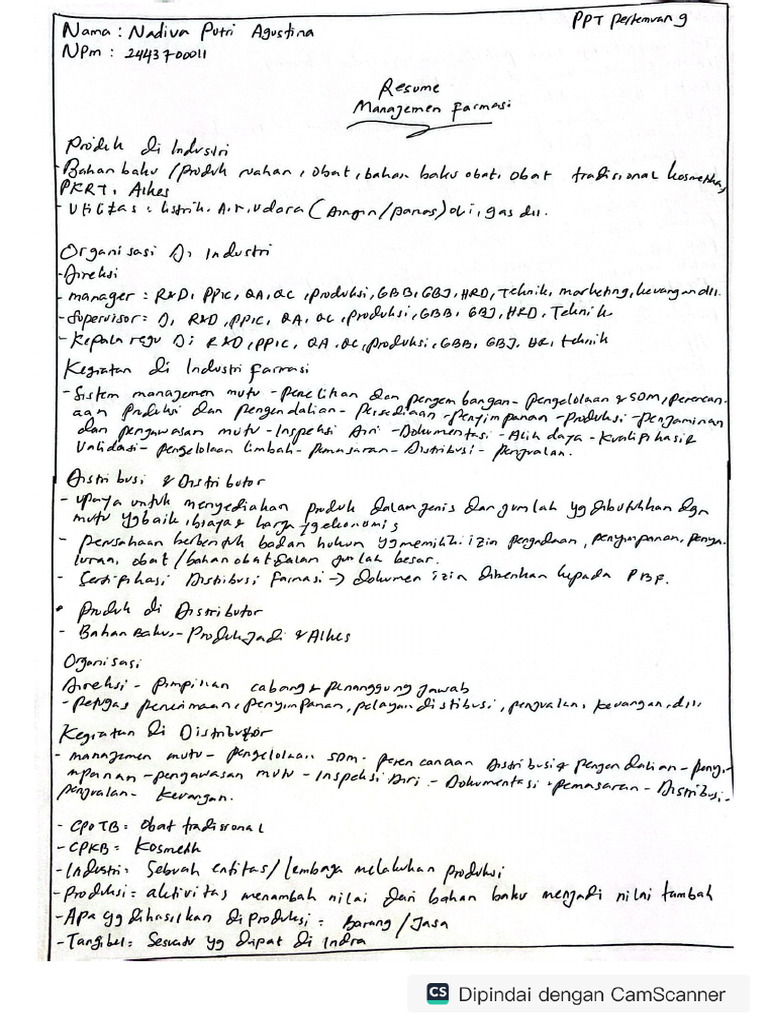 Nama : Nadiva Putri Agustina
PPT Pertemuan 9
NPm : 2443700011
Resume
Managemen Farmasi
Produk di Industri
- Bahan baku / Produk ruahan, obat, bahan baku obat, obat tradisional kosmetika,
PKRT, Alkes
- Utilitas : listrik, Air, udara (dingin/panas) oli, gas dll.
Organisasi Di Industri
- Direksi
- manager : R&D, PPIC, QA, QC, Produksi, GBB, GBJ, HRD, Teknik, marketing, keuangan dll.
- Supervisor = Di R&D, PPIC, QA, QC, Produksi, GBB, GBJ, HRD, Teknik
- Kepala regu Di R&D, PPIC, QA, QC, Produksi, GBB, GBJ, HR, teknik
Kegiatan di Industri Farmasi
- Sistem managemen mutu - Penelitian dan pengembangan - pengelolaan & SDM, perencan-
aan Produksi dan pengendalian - Persediaan - penyimpanan - Produksi - penjaminan
dan pengawasan mutu - Inspeksi diri - Dokumentasi - Alih daya - kualifikasi &
Validasi - pengelolaan limbah - Pemasaran - Distribusi - penjualan.
Distribusi & Distributor
- upaya untuk menyediakan produk dalam jenis dan jumlah yg dibutuhkan dgn
mutu yg baik, biaya & harga yg ekonomis
- perusahaan berbentuk badan hukum yg memiliki izin pengadaan, penyimpanan, penya-
luran, obat / bahan obat dalam jumlah besar.
- Sertifikasi Distribusi Farmasi -> dokumen izin diberikan kepada PBF.
• Produk di Distributor
- Bahan Baku - Produk Jadi & Alkes
Organisasi
Direksi - Pimpinan cabang & penanggung jawab
- Petugas penerimaan, penyimpanan, pelayan distibusi, penjualan, keuangan, dll,
Kegiatan di Distributor
- manajemen mutu - pengelolaan SDM - perencanaan Distribusi & pengendalian - peny-
impanan - pengawasan mutu - Inspeksi Diri - Dokumentasi - pemasaran - Distribusi -
penjualan - keuangan.
- CPOTB = Obat tradisional
- CPKB = Kosmetik
- Industri = Sebuah entitas / lembaga melakukan Produksi
- Produksi = aktivitas menambah nilai dari bahan baku menjadi nilai tambah
- Apa yg dihasilkan di Produksi = Barang / Jasa
- Tangibel = Sesuatu yg dapat di Indra
CS Dipindai dengan CamScanner